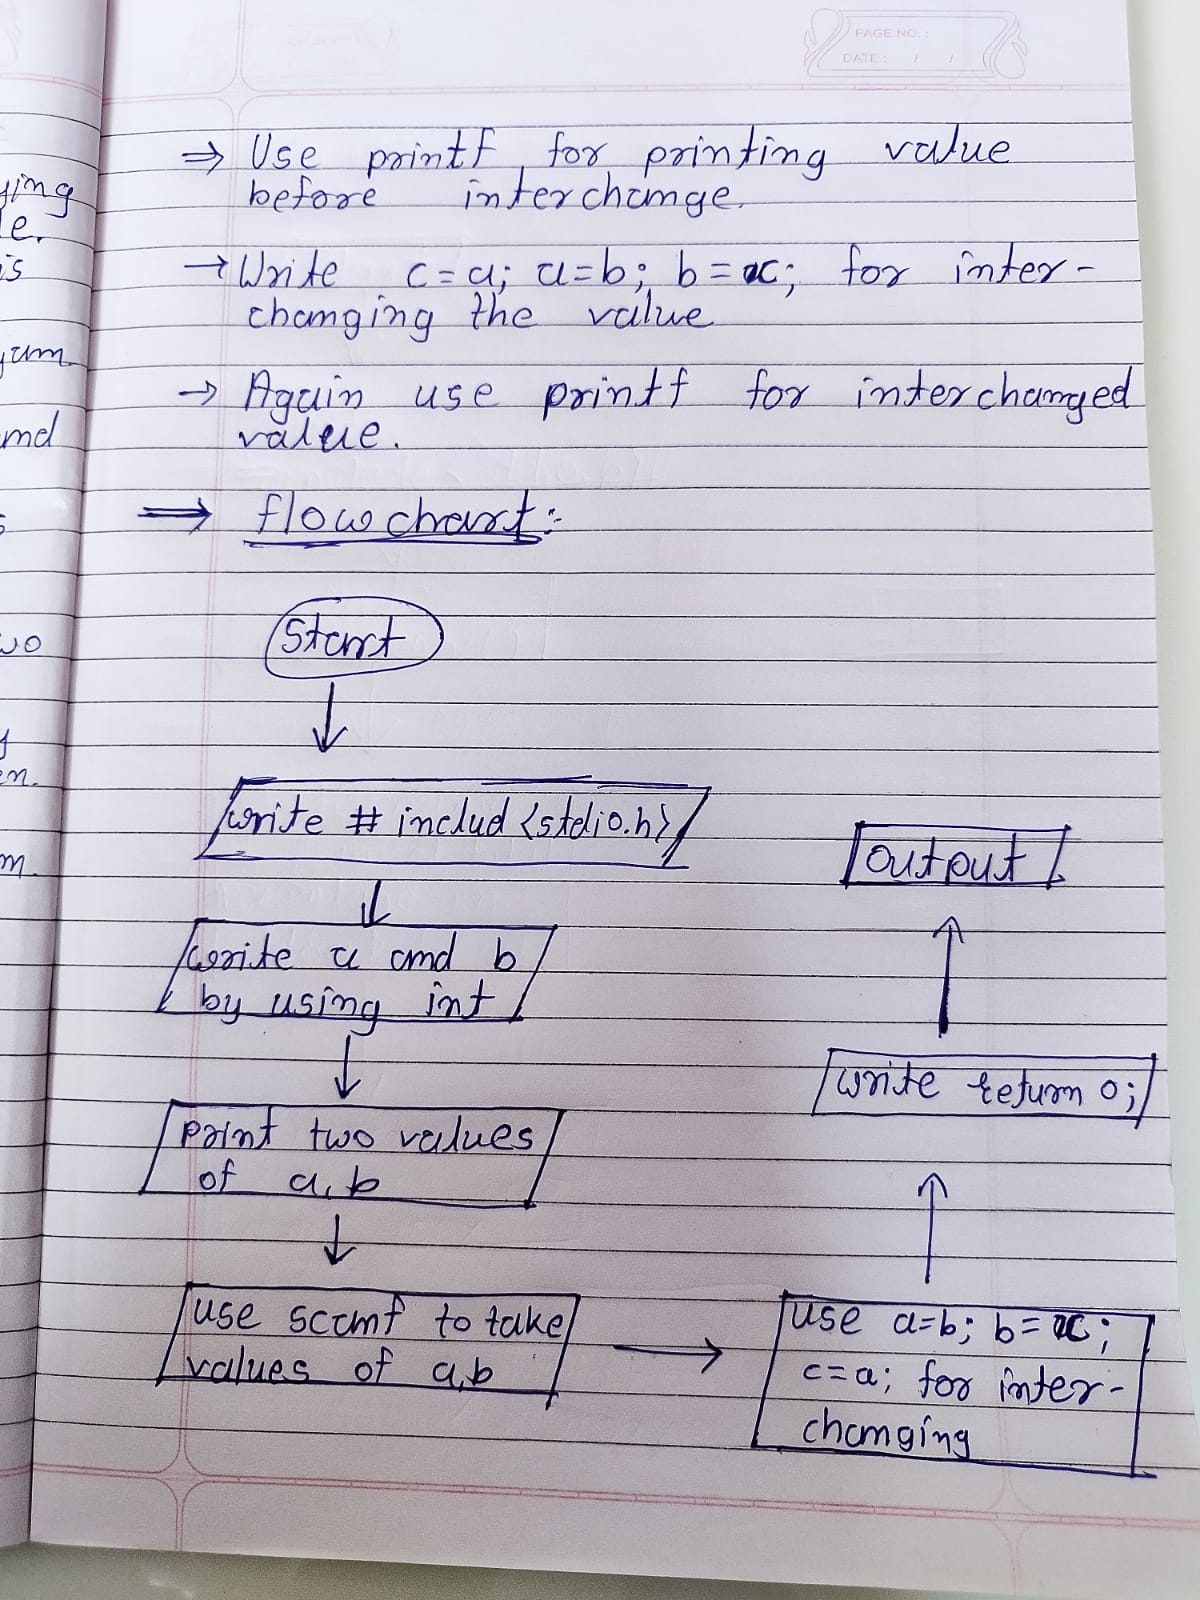 PAGE NO. :
DATE : / /
⇒ Use printf for printing value
before interchange.
→ Write c=a; a=b; b=c; for inter-
changing the value
→ Again use printf for interchanged
value.
⇒ flowchart:-
Start
write # includ <stdio.h>
write a and b
by using int
print two values
of a,b
use scanf to take
values of a,b
use a=b; b=c;
c=a; for inter-
changing
write return 0;
output
ying
le.
is
yam
and
wo
y
en.
m.